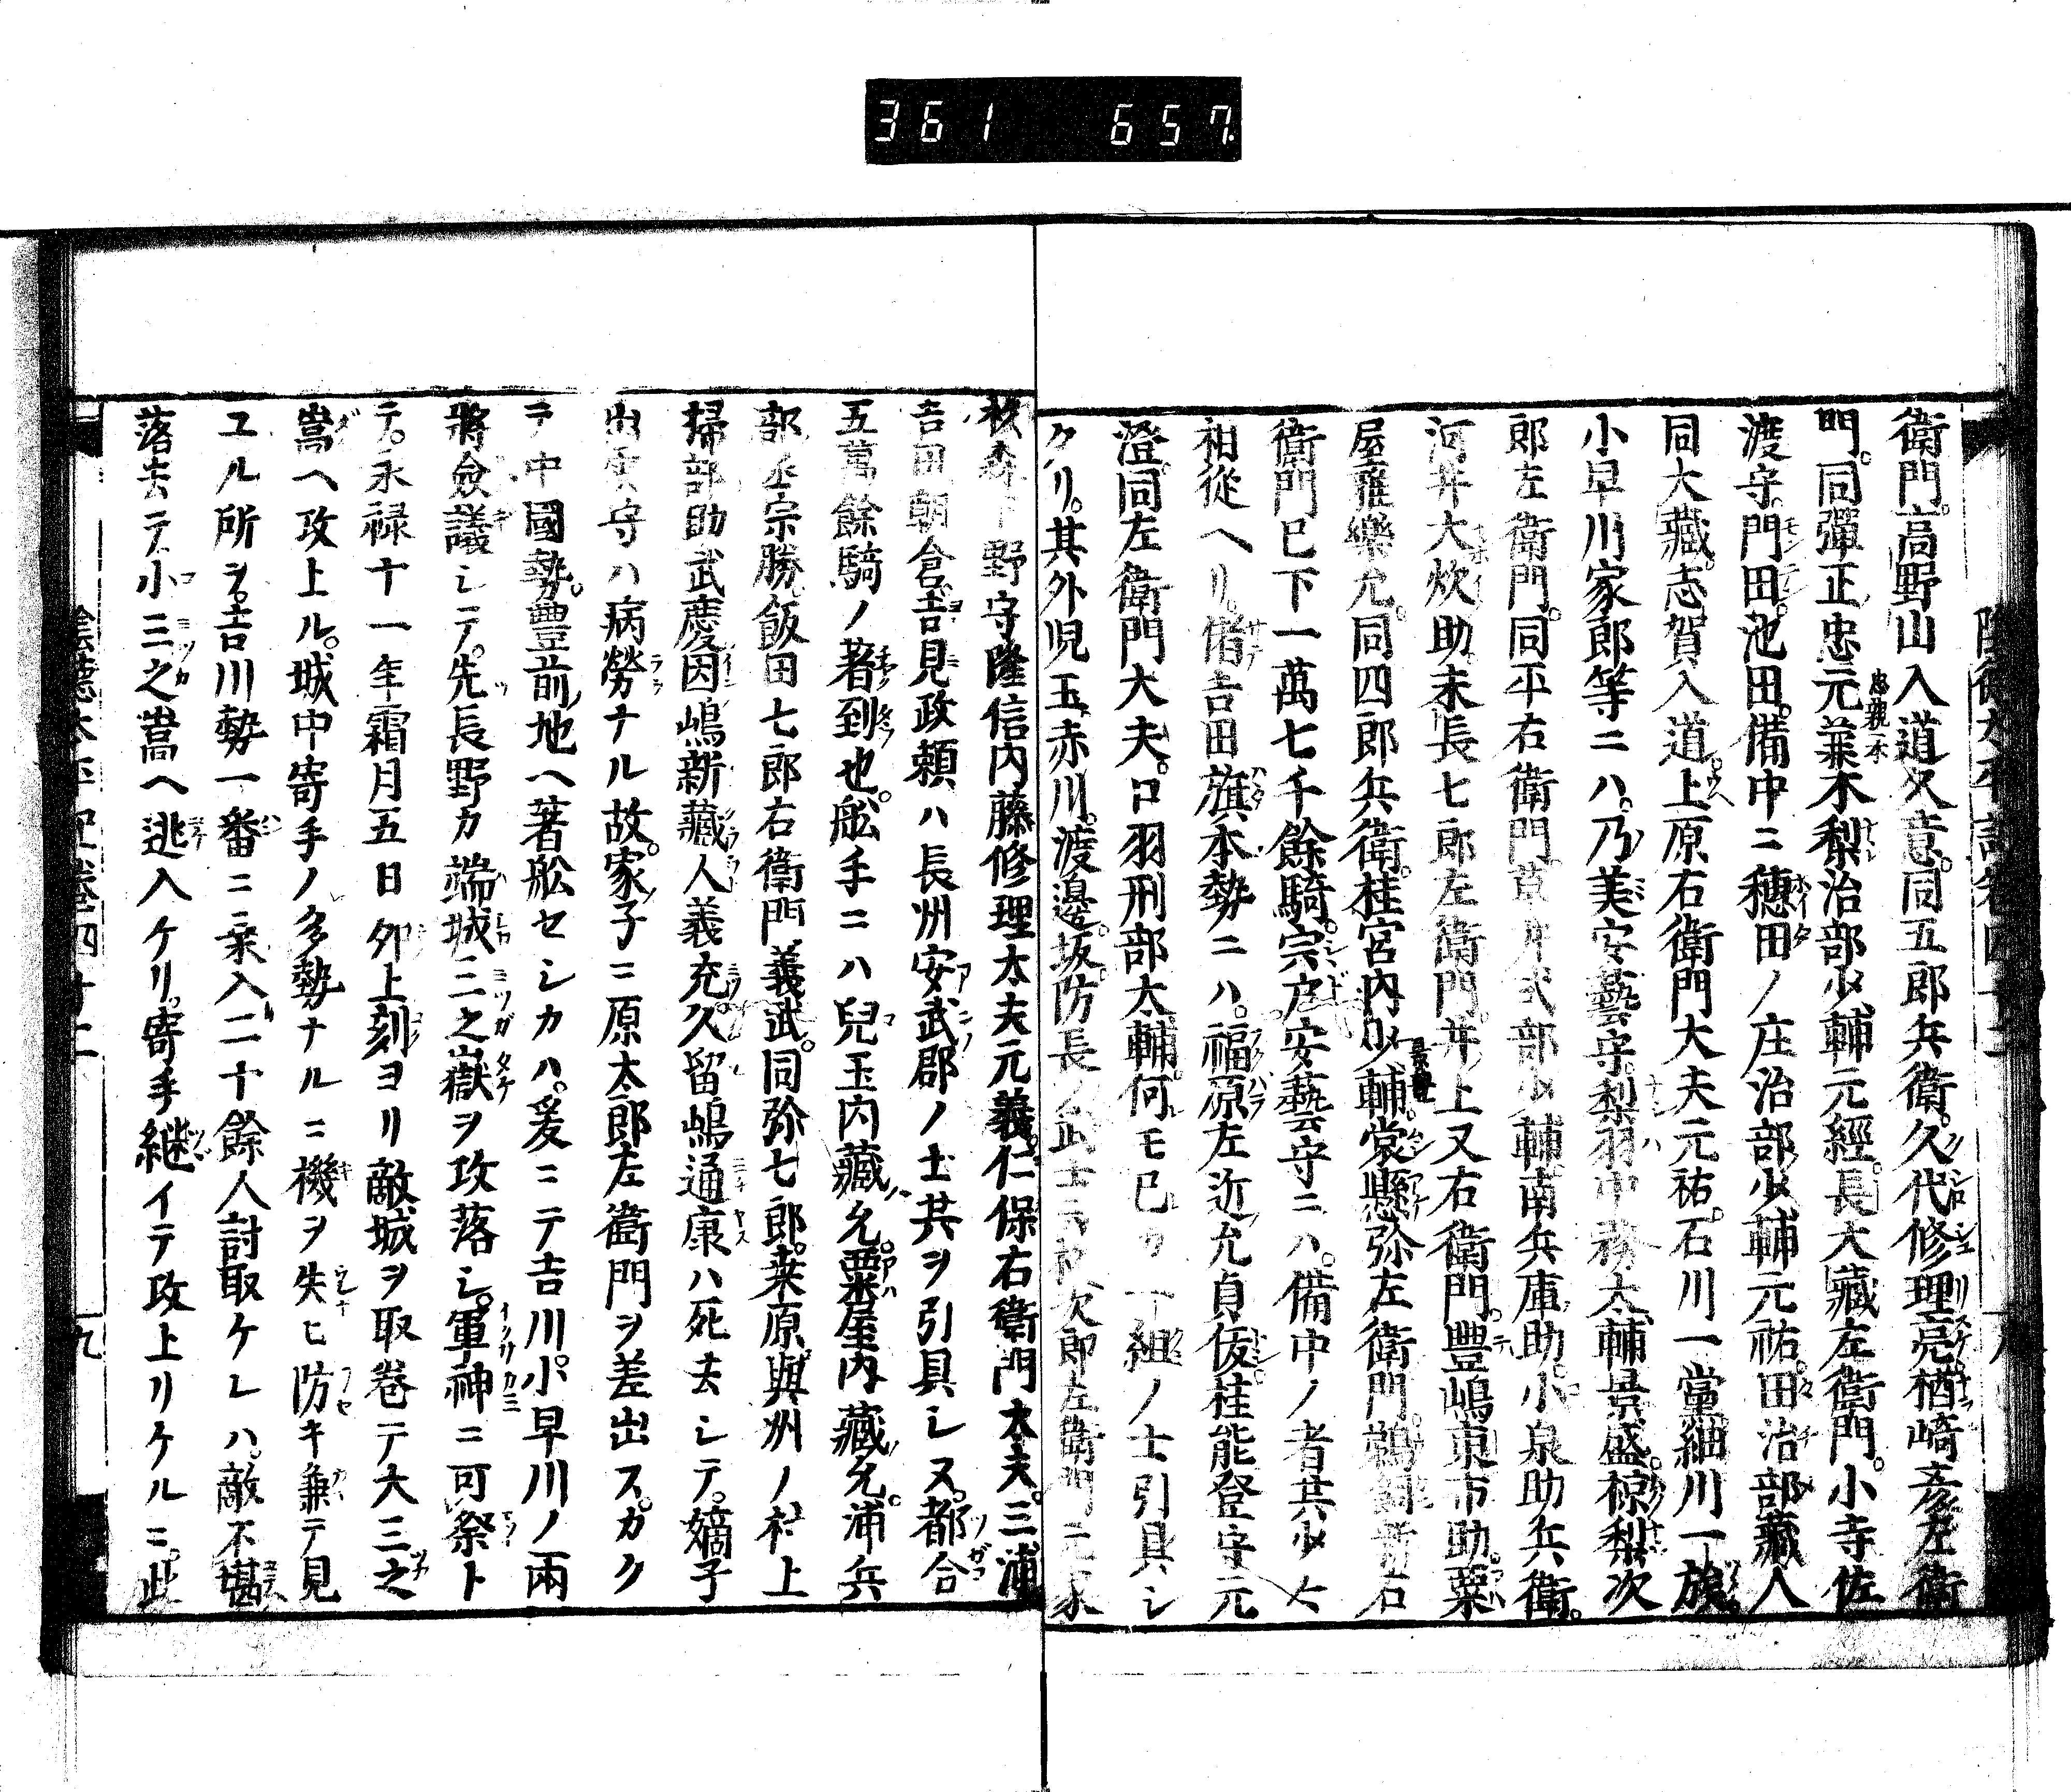 361 657
衛門。高野山入道久意。同五郎兵衛。久代修理亮。楢崎彦左衛
門。同彈正忠元兼。木梨治部少輔元經。長大藏左衛門。小寺佐
渡守。門田。池田。備中ニ穗田ノ庄治部少輔元祐。田治部藏人
同大藏。志賀入道。上原右衛門大夫元祐。石川一黨細川一族。
小早川家郎等ニハ。乃美安藝守。梨羽中務太輔景盛。椋梨次
郎左衛門。同平右衛門。草井式部少輔南兵庫助。小泉助兵衛。
河井大炊助。末長七郎左衛門。井上又右衛門。豐嶋東市助。粟
屋雍樂允。同四郎兵衛。桂宮内少輔。裳懸弥左衛門。鵜飼新右
衛門已下一萬七千餘騎。宗戸安藝守ニハ。備中ノ者共少々
相從ヘリ。偖吉田旗本勢ニハ。福原左近允貞俊。桂能登守元
澄。同左衛門大夫。口羽刑部太輔。何モ已カ一組ノ士引具シ
タリ。其外児玉。赤川。渡邊。坂。防長ノ武士 次郎左衛門元家
杉森下野守隆信内藤修理太夫元義。仁保右衛門太夫。三浦
吉田朝倉。吉見政頼ハ長洲安武郡ノ士共ヲ引具シス。都合
五萬餘騎ノ著到也。舩手ニハ兒玉内藏允。粟屋内藏允。浦兵
部丞宗勝。飯田七郎右衛門義武。同弥七郎。桒原。與洲ノ村上
掃部助武慶。因嶋新藏人義充。久留嶋通康ハ死去シテ。嫡子
出雲守ハ病勞ナル故。家子ニ原太郎左衛門ヲ差出ス。カク
テ中國勢。豊前ノ地ヘ著舩セシカハ。爰ニテ吉川。小早川ノ兩
將僉議シテ。先長野カ端城三之嶽ヲ攻落シ。軍神ニ可祭ト
テ。永禄十一年霜月五日卯上刻ヨリ敵城ヲ取巻テ大三之
嵩ヘ攻上ル。城中寄手ノ多勢ナルニ機ヲ失ヒ防キ兼テ見
ユル所ヲ。吉川勢一番ニ乗入。二十餘人討取ケレハ。敵不堪
落去テ。小三之嵩ヘ逃入ケリ。寄手継イテ攻上リケルニ。此
陰徳太平記卷四十二
八
陰徳太平記卷四十二
九